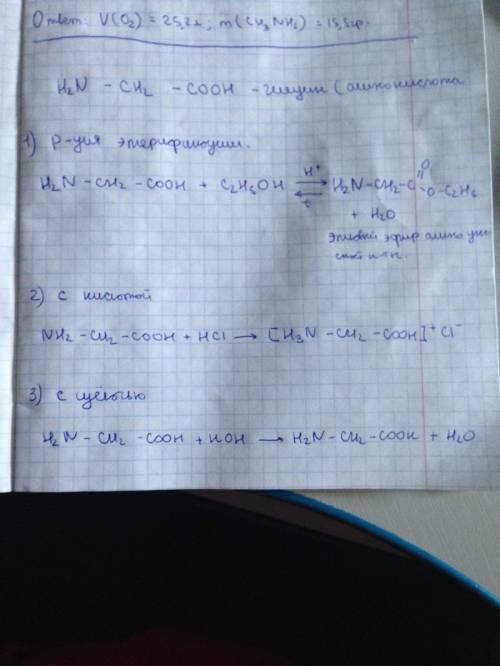 Ответ: V(O₂) = 25,2л; m(CH₃NH₂) = 15,5гр.
H₂N – CH₂ – COOH – глицин (аминокислота
1) Р-ция этерификации.
H₂N – CH₂ – COOH + C₂H₅OH ⇄ H₂N – CH₂ – C
H⁺
t
O
O – C₂H₅
+ H₂O
этиловый эфир амино
2) с кислотой
NH₂ – CH₂ – COOH + HCl → [CH₃N – CH₂ – COOH]⁺ Cl⁻
3) с щёлочью
H₂N – CH₂ – COOH + KOH → H₂N – CH₂ – COOK + H₂O